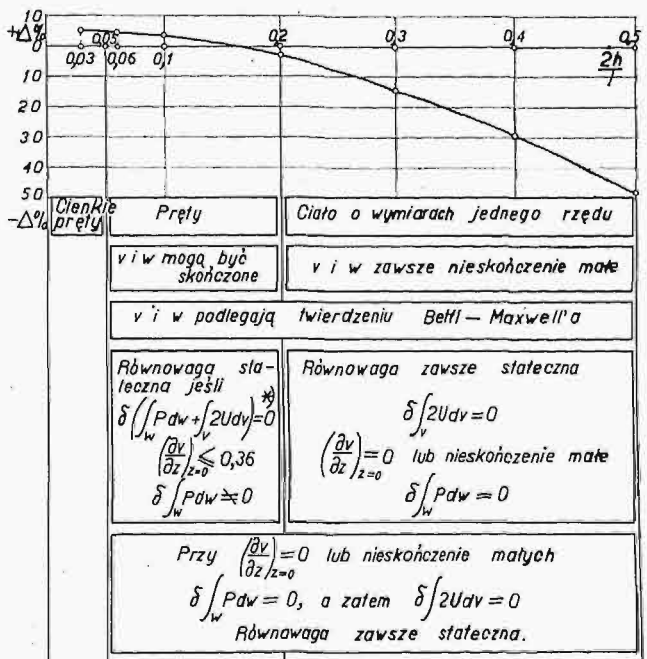 10
+Δ%
0
10
20
30
40
50
-Δ%
0,03
0,05
0,06
0,1
0,2
0,3
0,4
0,5
2h
l
Cienkie
pręty
Pręty
Ciało o wymiarach jednego rzędu
v i w mogą być
skończone
v i w zawsze nieskończenie małe
v i w podlegają twierdzeniu Betti — Maxwell'a
Równowaga sta-
teczna jeśli
δ(∫_W Pdw + ∫_V 2Udv) = 0 *)
(∂v/∂z)_{z=0} ⩽ 0,36
δ∫_W Pdw ≒ 0
Równowaga zawsze stateczna
δ∫_V 2Udv = 0
(∂v/∂z)_{z=0} = 0 lub nieskończenie małe
δ∫_W Pdw = 0
Przy (∂v/∂z)_{z=0} = 0 lub nieskończenie małych
δ∫_W Pdw = 0, a zatem δ∫2Udv = 0
Równawaga zawsze stateczna.